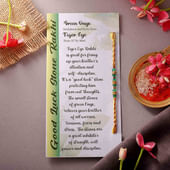 Good Luck Stone Rakhi
Green Onyx
Tiger Eye
Tiger Eye Rakhi
is great for fixing
up your brother's
attention and
self-discipline.
It's a "good luck" stone
protecting him
from evil thoughts.
The small stones
of green Onyx,
relieves your brother
of all worries,
tensions, fears and
stress. The stones are
a great inhibitor
of strength, will
power and discipline.